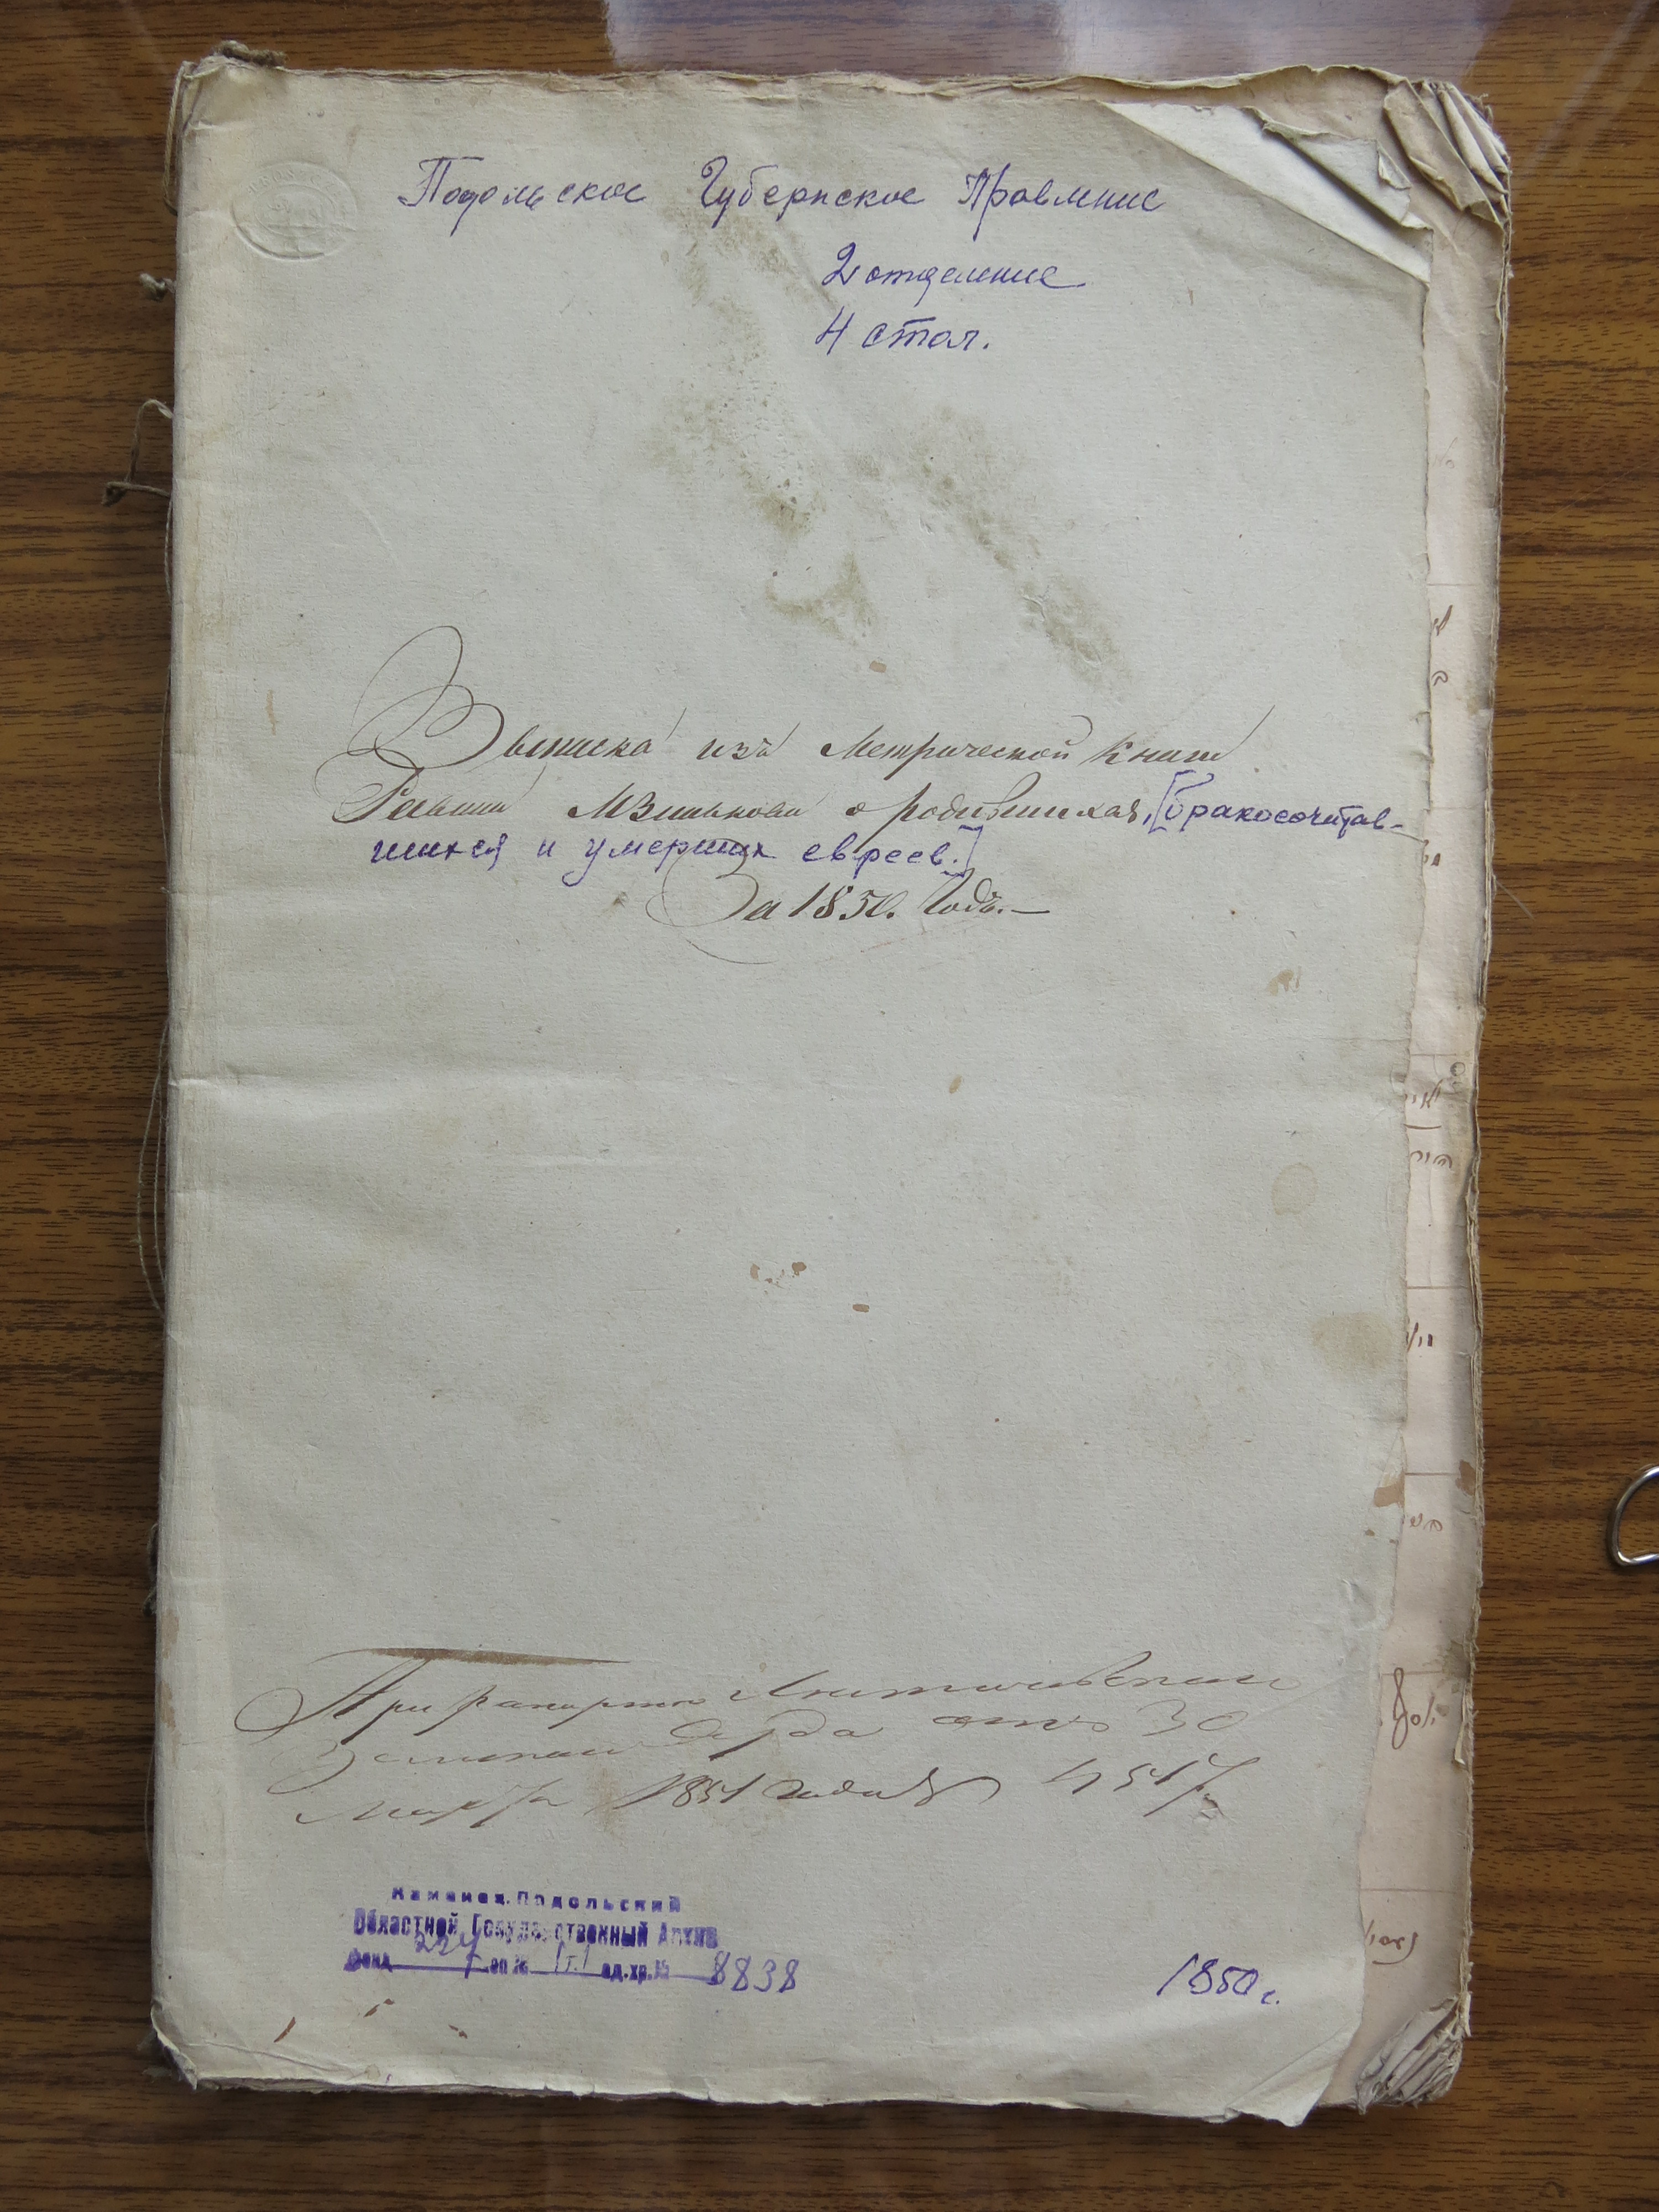 Подольское Губернское Правление
2 отделение
4 стол.
Выписка изъ Метрической книги
о родившихся, [бракосочитав-
шихся и умерших евреев.]
За 1850. Годъ.—
При рапорте Летичевскаго
отъ 30
Марта 1851 года № 4517
Каменец.Подольский
Областной Государственный Архив
Фонд 227 оп № 1т.1 ед.хр.№ 8838
1850 г.